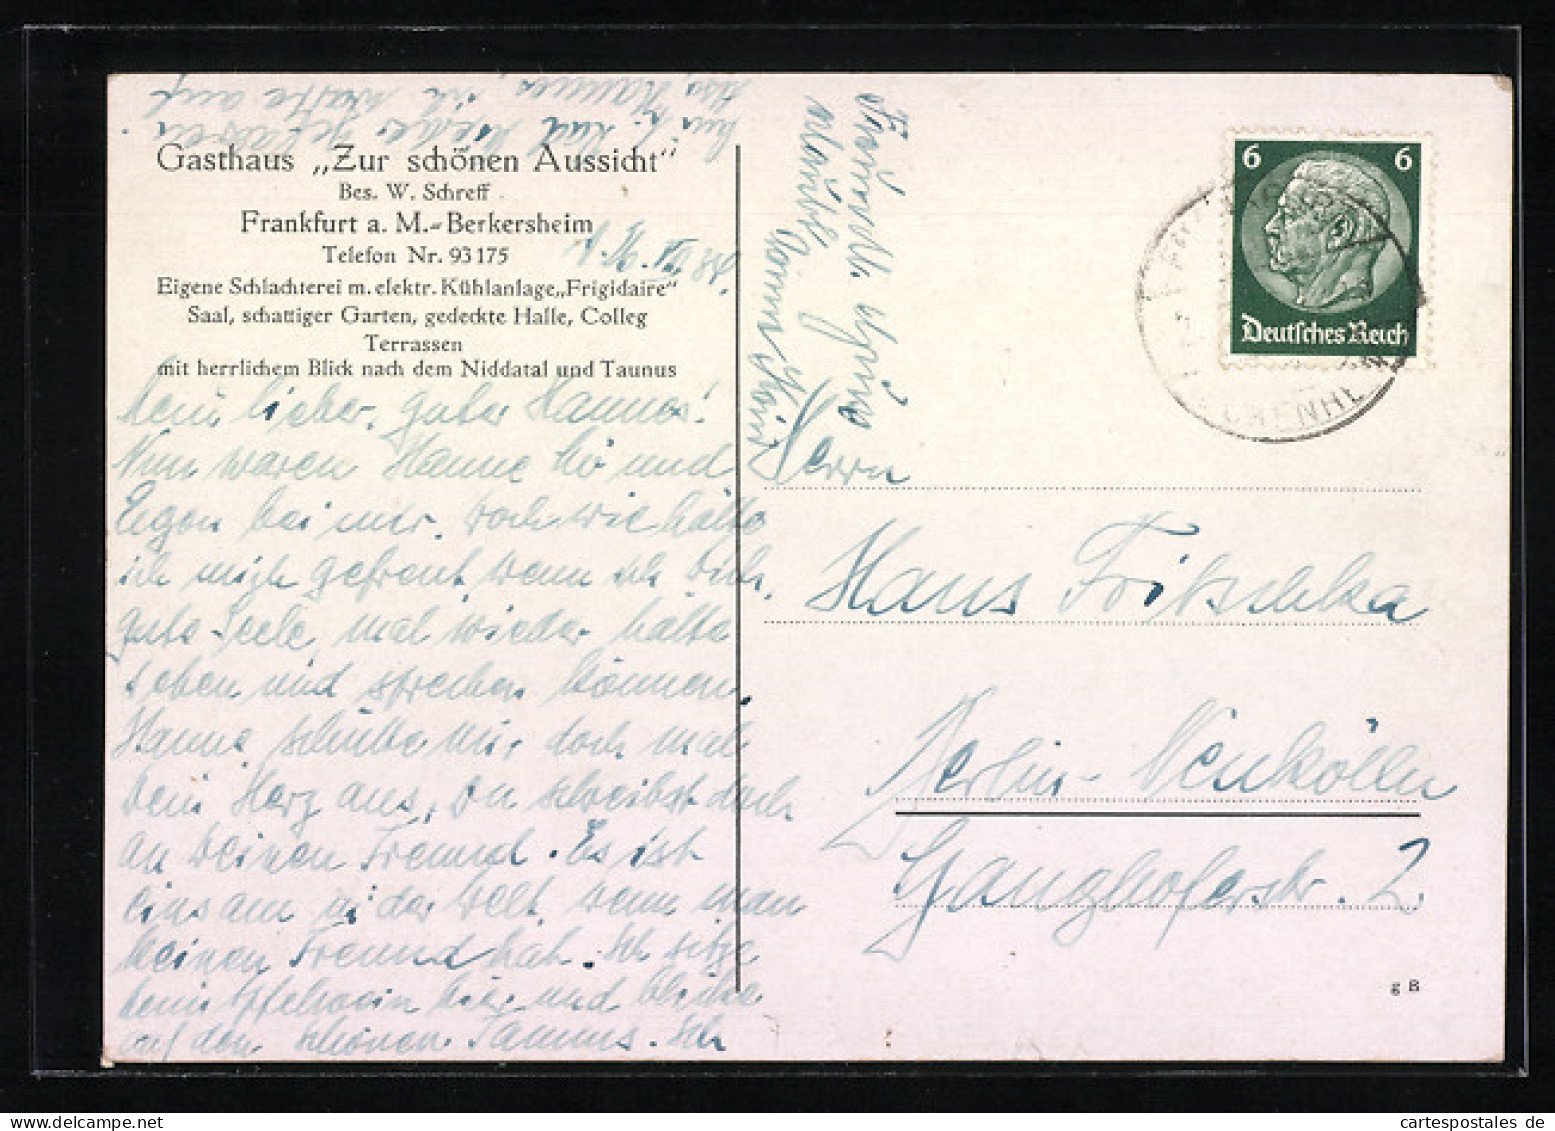 Gasthaus „Zur schönen Aussicht"
Bes. W. Schreff
Frankfurt a. M.-Berkersheim
Telefon Nr. 93175
Eigene Schlachterei m. elektr. Kühlanlage „Frigidaire"
Saal, schattiger Garten, gedeckte Halle, Colleg
Terrassen
mit herrlichem Blick nach dem Niddatal und Taunus
Mein lieber, guter Hannes!
Nun waren Hanne und
Egon bei mir. Doch wie hätte
ich mich gefreut, wenn ich Dich,
gute Seele, mal wieder hätte
sehen und sprechen können.
Hannes, schütte mir doch mal
Dein Herz aus, Du schreibst doch
an Deinen Freund. Es ist
einsam in der Welt, wenn man
keinen Freund hat. Ich sitze
beim Apfelwein hier und blicke
auf den schönen Taunus. Ich
bin p. Rad wieder
also, Hannes, ich warte auf
Freundl. Grüße
Herrn
Hans Fritschka
Berlin-Neukölln
Ganghoferstr. 2
6 6
Deutsches Reich
g B
cartespostales de